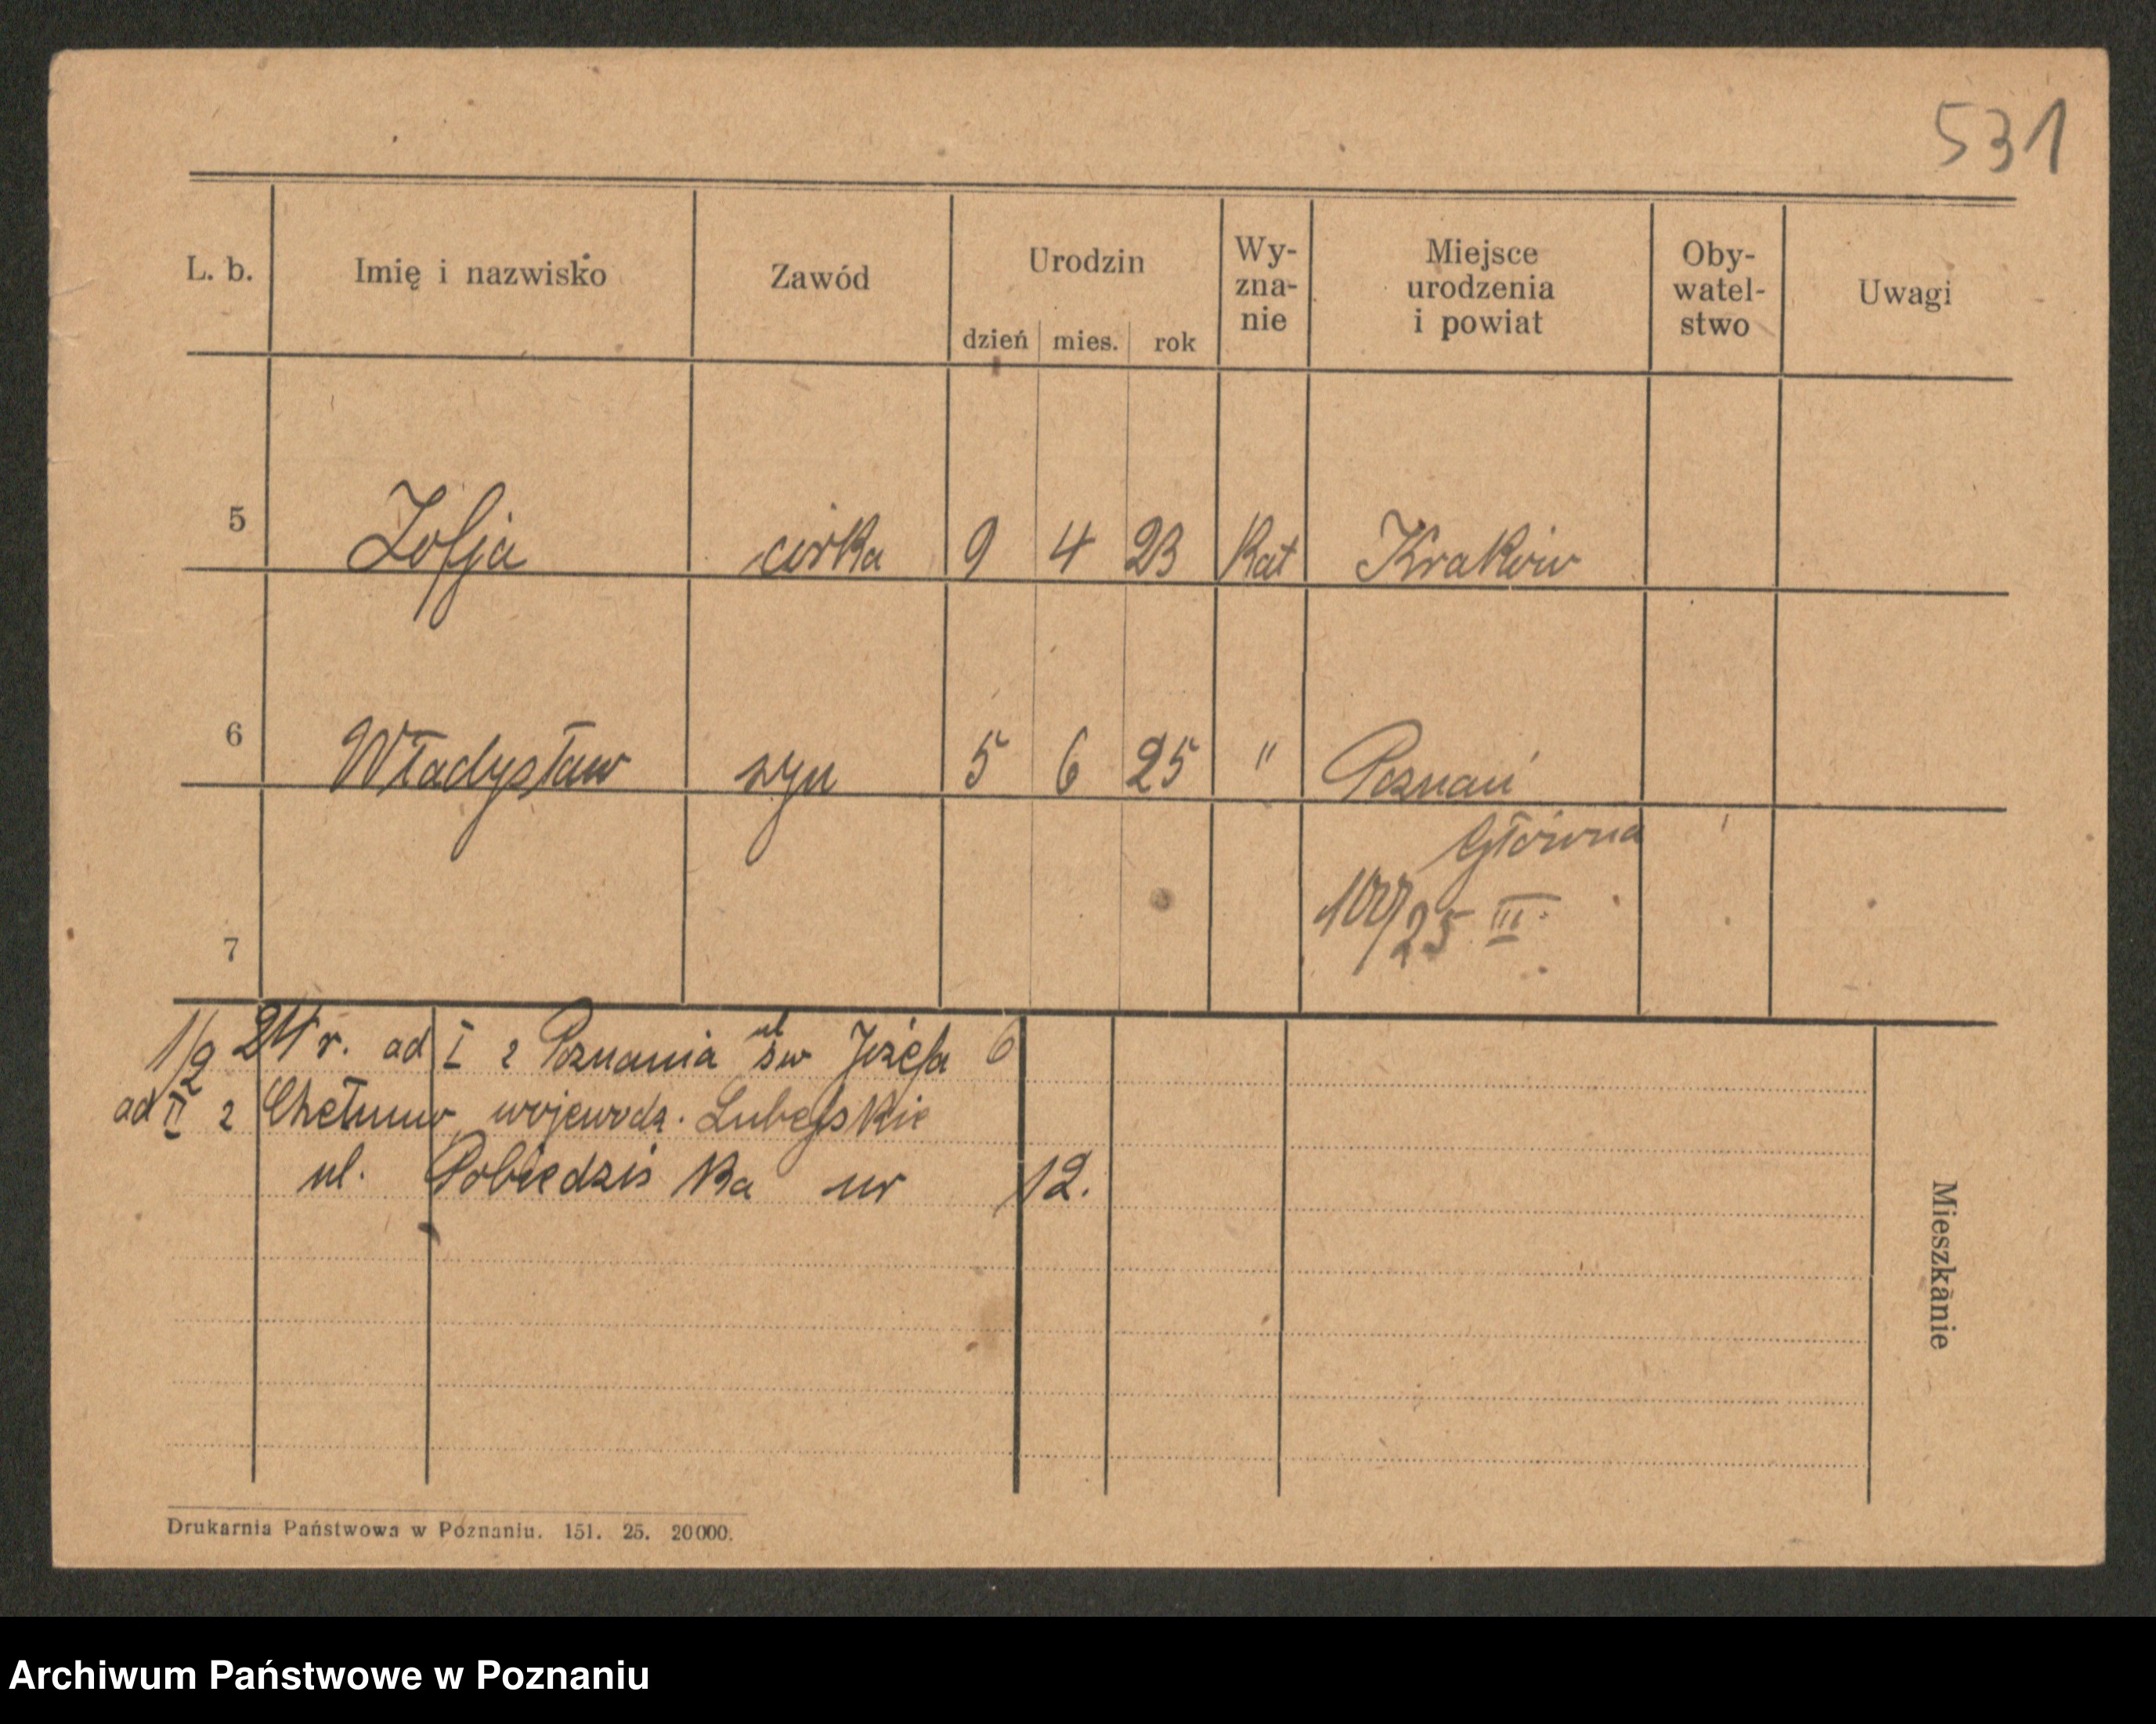 531
L. b. Imię i nazwisko Zawód Urodzin Wy-zna-nie Miejsce urodzenia i powiat Oby-watel-stwo Uwagi
dzień mies. rok
5 Zofja córka 9 4 23 Kat Kraków
6 Władysław syn 5 6 25 " Poznań
Główna
/25 III.
7
1/9 24 r. ad I z Poznania ul św Józefa 6
ad II z Chełmw wojewódz. Lubelskie
ul. Pobiedziska nr 12.
Mieszkanie
Drukarnia Państwowa w Poznaniu. 151. 25. 20000.
Archiwum Państwowe w Poznaniu